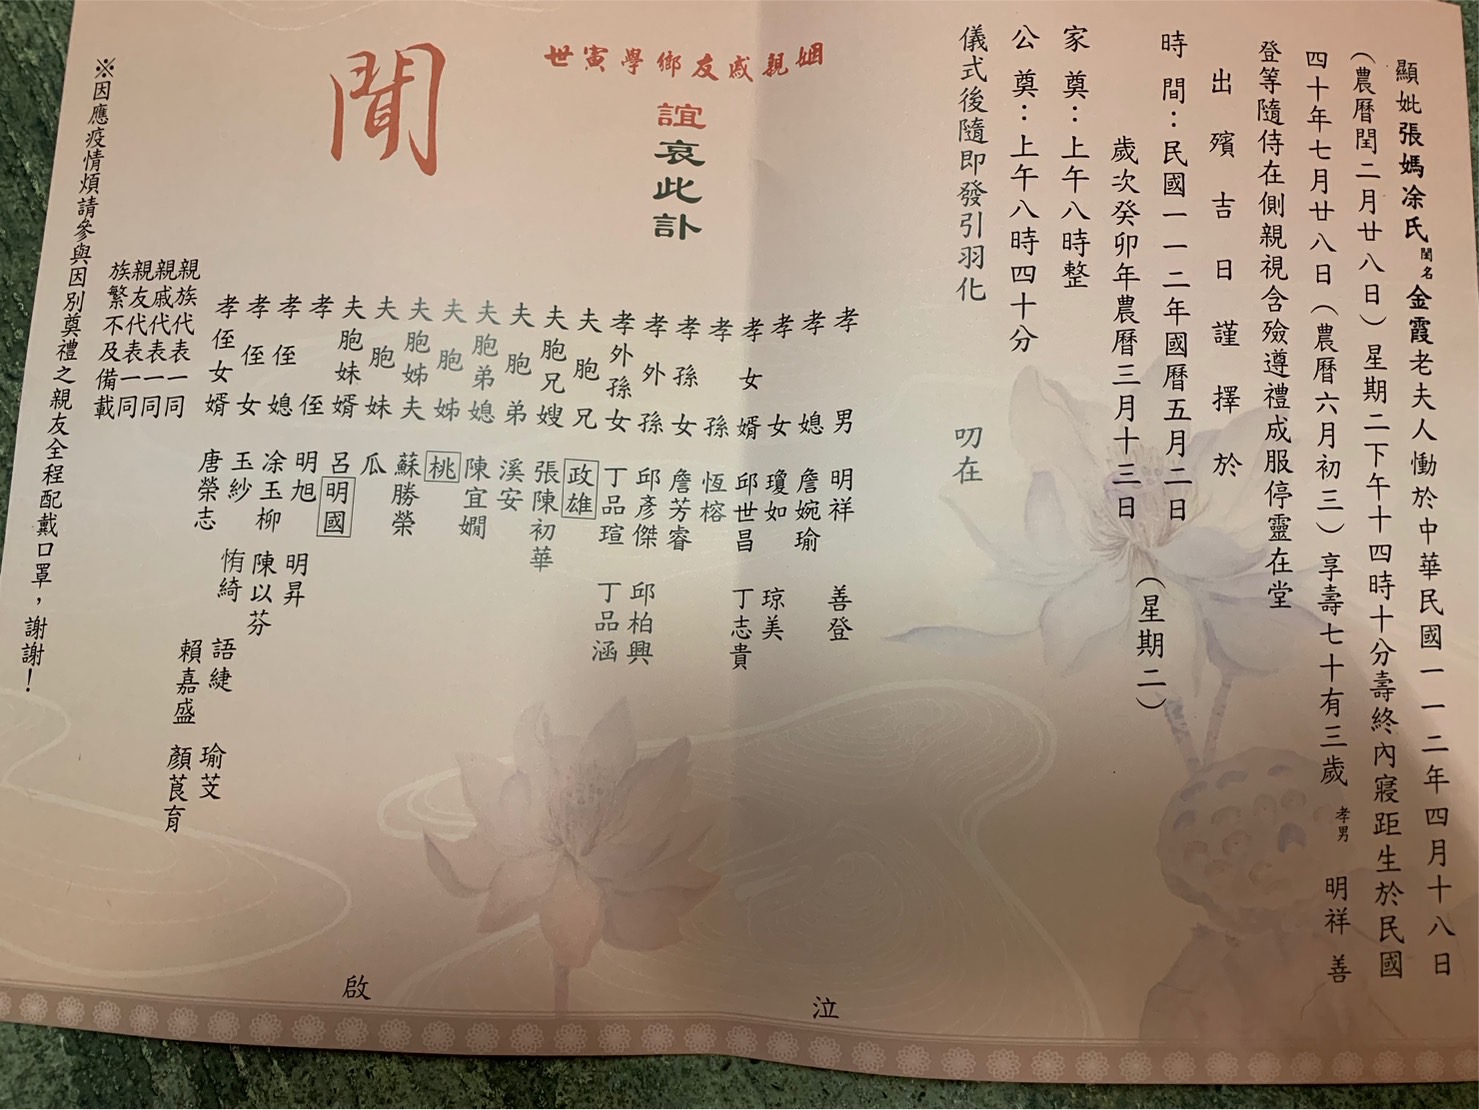 顯妣張媽凃氏閨名金霞老夫人慟於中華民國一一二年四月十八日
（農曆閏二月廿八日）星期二下午十四時十分壽終內寢距生於民國
四十年七月廿八日（農曆六月初三）享壽七十有三歲 孝男 明祥 善
登等隨侍在側親視含殮遵禮成服停靈在堂
出殯吉日謹擇於
時間：民國一一二年國曆五月二日
歲次癸卯年農曆三月十三日
（星期二）
家奠：上午八時整
公奠：上午八時四十分
儀式後隨即發引羽化
叨在
世寅學鄉友戚親姻
誼哀此訃
聞
孝男 明祥 善登
孝媳 詹婉瑜
孝女 瓊如 琼美
孝女婿 邱世昌 丁志貴
孝孫 恆榕
孝孫女 詹芳睿
孝外孫 邱彥傑 邱柏興
孝外孫女 丁品瑄 丁品涵
夫胞兄 政雄
夫胞兄嫂 張陳初華
夫胞弟 溪安
夫胞弟媳 陳宜嫺
夫胞姊 桃
夫胞姊夫 蘇勝榮
夫胞妹 瓜
夫胞妹婿 呂明國
孝侄 明旭 明昇
孝侄媳 凃玉柳 陳以芬
孝侄女 玉紗 侑綺 語緁 瑜芠
孝侄女婿 唐榮志 賴嘉盛 顏莨育
親族代表一同
親戚代表一同
親友代表一同
族繁不及備載
泣
啟
※因應疫情煩請參與因別奠禮之親友全程配戴口罩，謝謝！